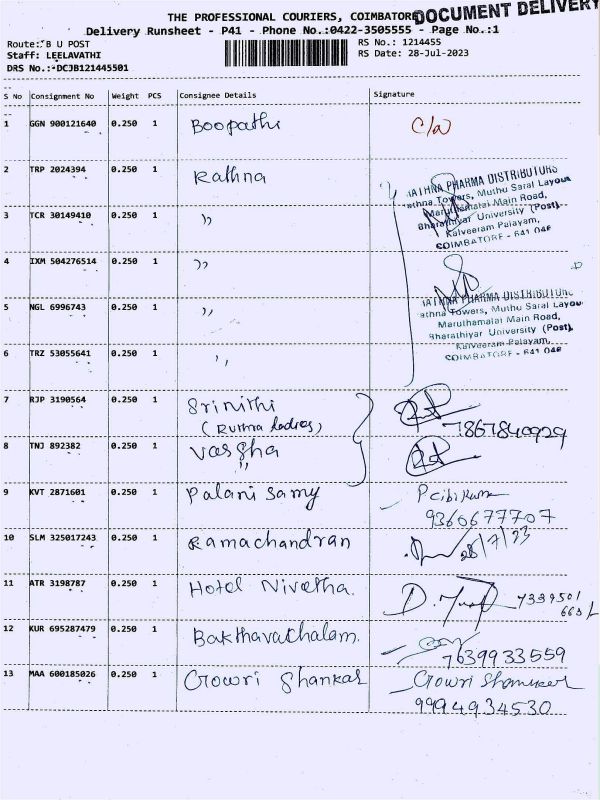 THE PROFESSIONAL COURIERS, COIMBATORE
DOCUMENT DELIVERY
Delivery Runsheet - P41 - Phone No.:0422-3505555 - Page No.:1
Route: B U POST
RS No.: 1214455
Staff: LEELAVATHI
RS Date: 28-Jul-2023
DRS No.: DCJB121445501
S No Consignment No Weight PCS Consignee Details Signature
1 GGN 900121640 0.250 1 Boopathi C/a
2 TRP 2024394 0.250 1 Rathna
RATHNA PHARMA DISTRIBUTORS
athna Towers, Muthu Saral Layou
Maruthamalai Main Road,
Bharathiyar University (Post)
Kalveeram Palayam,
COIMBATORE - 641 046
3 TCR 30149410 0.250 1 ,,
4 IXM 504276514 0.250 1 ,,
5 NGL 6996743 0.250 1 ,,
ATHNA PHARMA DISTRIBUTORS
athna Towers, Muthu Saral Layou
Maruthamalai Main Road,
Bharathiyar University (Post),
Kalveeram Palayam,
COIMBATORE - 641 046
6 TRZ 53055641 0.250 1 ,,
7 RJP 3190564 0.250 1 Srinithi
(Ruthra ladies)
7867840929
8 TNJ 892382 0.250 1 Varsha
,,
9 KVT 2871601 0.250 1 Palani Samy P Cibikum
9360677707
10 SLM 325017243 0.250 1 Ramachandran 28/7/23
11 ATR 3198787 0.250 1 Hotel Nivetha. 7339501
12 KUR 695287479 0.250 1 Bakthavathalam.
7639933559
13 MAA 600185026 0.250 1 Gowri Shankar Gowri Shankar
9994934530